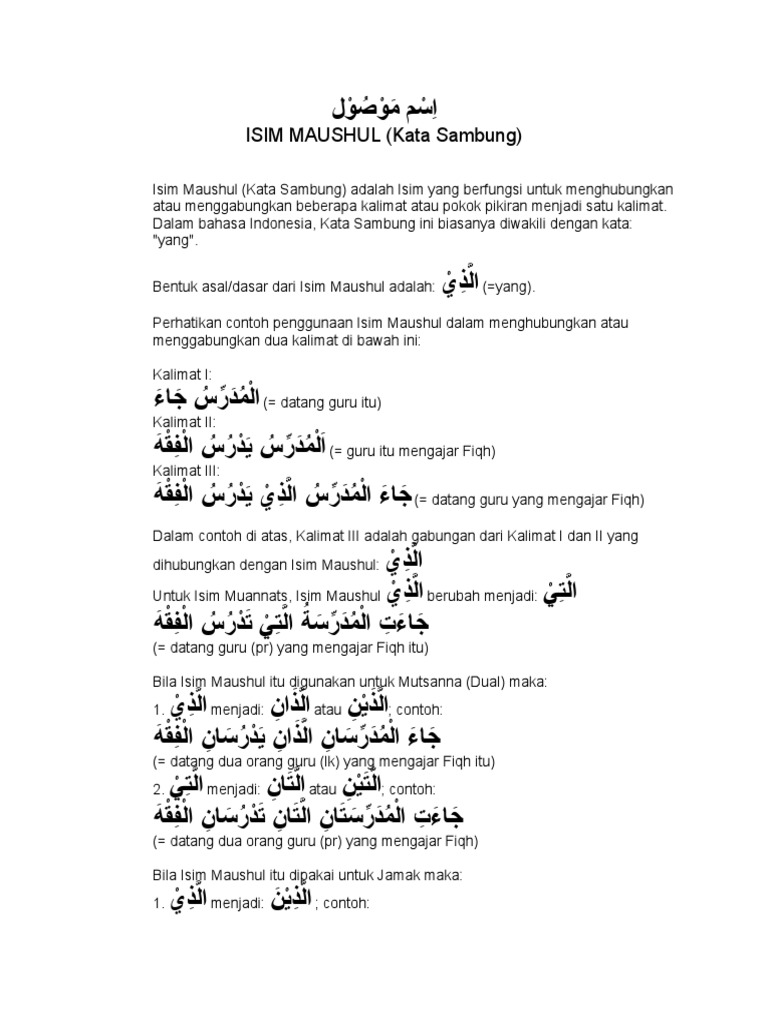 اِسْم مَوْصُوْل
ISIM MAUSHUL (Kata Sambung)
Isim Maushul (Kata Sambung) adalah Isim yang berfungsi untuk menghubungkan
atau menggabungkan beberapa kalimat atau pokok pikiran menjadi satu kalimat.
Dalam bahasa Indonesia, Kata Sambung ini biasanya diwakili dengan kata:
"yang".
Bentuk asal/dasar dari Isim Maushul adalah: الَّذِيْ (=yang).
Perhatikan contoh penggunaan Isim Maushul dalam menghubungkan atau
menggabungkan dua kalimat di bawah ini:
Kalimat I:
الْمُدَرِّسُ جَاءَ (= datang guru itu)
Kalimat II:
اَلْمُدَرِّسُ يَدْرُسُ الْفِقْهَ (= guru itu mengajar Fiqh)
Kalimat III:
جَاءَ الْمُدَرِّسُ الَّذِيْ يَدْرُسُ الْفِقْهَ (= datang guru yang mengajar Fiqh)
Dalam contoh di atas, Kalimat III adalah gabungan dari Kalimat I dan II yang
dihubungkan dengan Isim Maushul: الَّذِيْ
Untuk Isim Muannats, Isim Maushul الَّذِيْ berubah menjadi: الَّتِيْ
جَاءَتِ الْمُدَرِّسَةُ الَّتِيْ تَدْرُسُ الْفِقْهَ
(= datang guru (pr) yang mengajar Fiqh itu)
Bila Isim Maushul itu digunakan untuk Mutsanna (Dual) maka:
1. الَّذِيْ menjadi: الَّذَانِ atau الَّذَيْنِ; contoh:
جَاءَ الْمُدَرِّسَانِ الَّذَانِ يَدْرُسَانِ الْفِقْهَ
(= datang dua orang guru (lk) yang mengajar Fiqh itu)
2. الَّتِيْ menjadi: الَّتَانِ atau الَّتَيْنِ; contoh:
جَاءَتِ الْمُدَرِّسَتَانِ الَّتَانِ تَدْرُسَانِ الْفِقْهَ
(= datang dua orang guru (pr) yang mengajar Fiqh)
Bila Isim Maushul itu dipakai untuk Jamak maka:
1. الَّذِيْ menjadi: الَّذِيْنَ ; contoh: